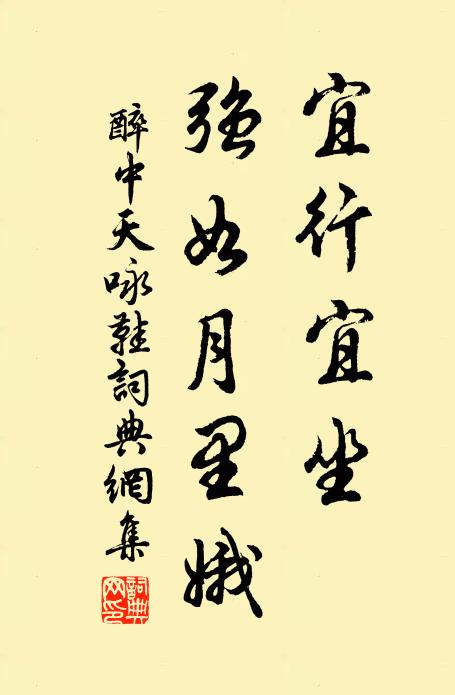 宜行宜坐
强如月里娥
醉中天咏鞋詞典網集
詞典網印